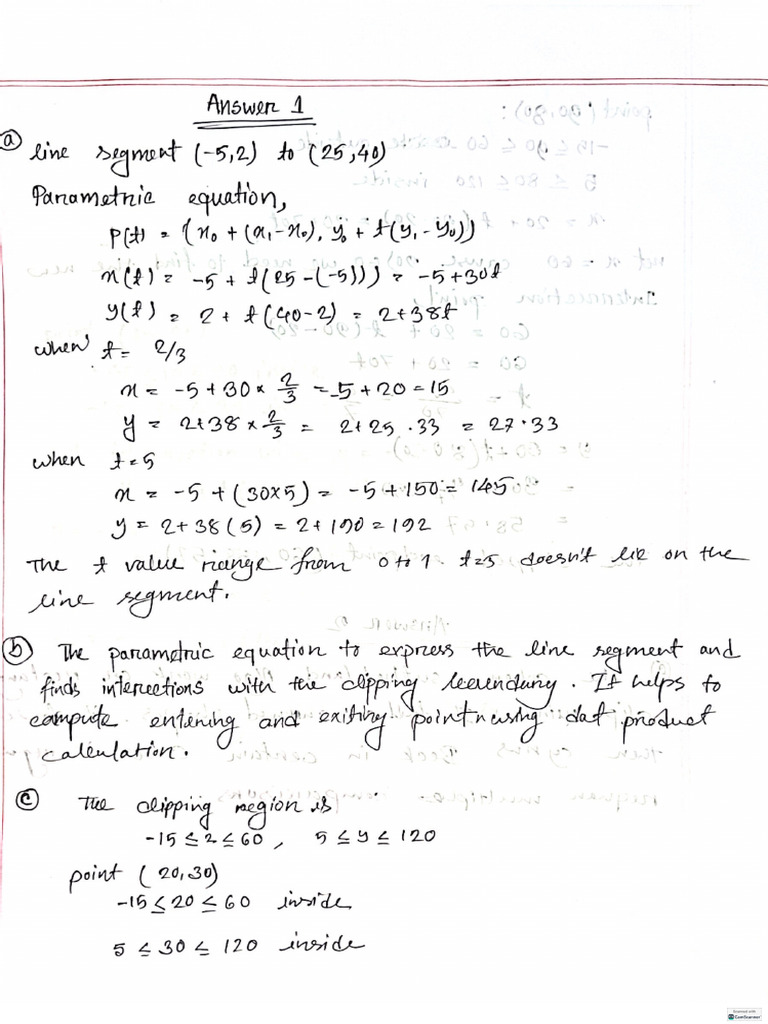 Answer 1
(a) line segment (-5,2) to (25,40)
Parametric equation,
P(t) = (x₀ + (x₁-x₀), y₀ + t(y₁-y₀))
x(t) = -5 + t(25-(-5)) = -5+30t
y(t) = 2 + t(40-2) = 2+38t
when t = 2/3
x = -5+30×2/3 = -5+20 = 15
y = 2+38×2/3 = 2+25.33 = 27.33
when t=5
x = -5+(30×5) = -5+150 = 145
y = 2+38(5) = 2+190 = 192
The t value range from 0 to 1. t=5 doesn't lie on the
line segment.
(b) The parametric equation to express the line segment and
finds intercetions with the clipping
. It helps to
compute entering and exiting point using dot product
calculation.
(c) The clipping region is
-15 ≤ 2 ≤ 60, 5 ≤ y ≤ 120
point (20,30)
-15 ≤ 20 ≤ 60 inside
5 ≤ 30 ≤ 120 inside
Scanned with
CamScanner